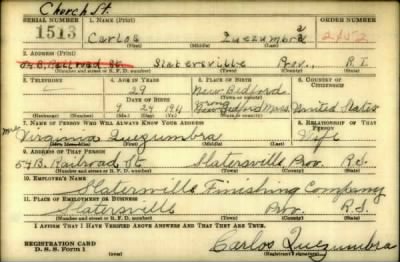 Church St.
SERIAL NUMBER 1. NAME (Print) ORDER NUMBER
1513 Carlos Quezumbra
(First) (Middle) (Last)
2. ADDRESS (Print)
54 B. Railroad St. Slatersville Prov., R.I.
(Number and street or R. F. D. number) (Town) (County) (State)
3. TELEPHONE 4. AGE IN YEARS 5. PLACE OF BIRTH 6. COUNTRY OF CITIZENSHIP
29 New Bedford
DATE OF BIRTH
9 27 1911 New Bedford Mass. United States
(Mo.) (Day) (Yr.) (State or country)
7. NAME OF PERSON WHO WILL ALWAYS KNOW YOUR ADDRESS 8. RELATIONSHIP OF THAT PERSON
Mrs Virginia Quezumbra Wife
(Mr., Mrs., Miss) (First) (Middle) (Last)
9. ADDRESS OF THAT PERSON
54 B. Railroad St. Slatersville Prov. R.I.
(Number and street or R. F. D. number) (Town) (County) (State)
10. EMPLOYER'S NAME
Slatersville Finishing Company
11. PLACE OF EMPLOYMENT OR BUSINESS
Slatersville Prov. R.I.
(Number and street or R. F. D. number) (Town) (County) (State)
I AFFIRM THAT I HAVE VERIFIED ABOVE ANSWERS AND THAT THEY ARE TRUE.
REGISTRATION CARD
D. S. S. Form 1 Carlos Quezumbra
(Registrant's signature)